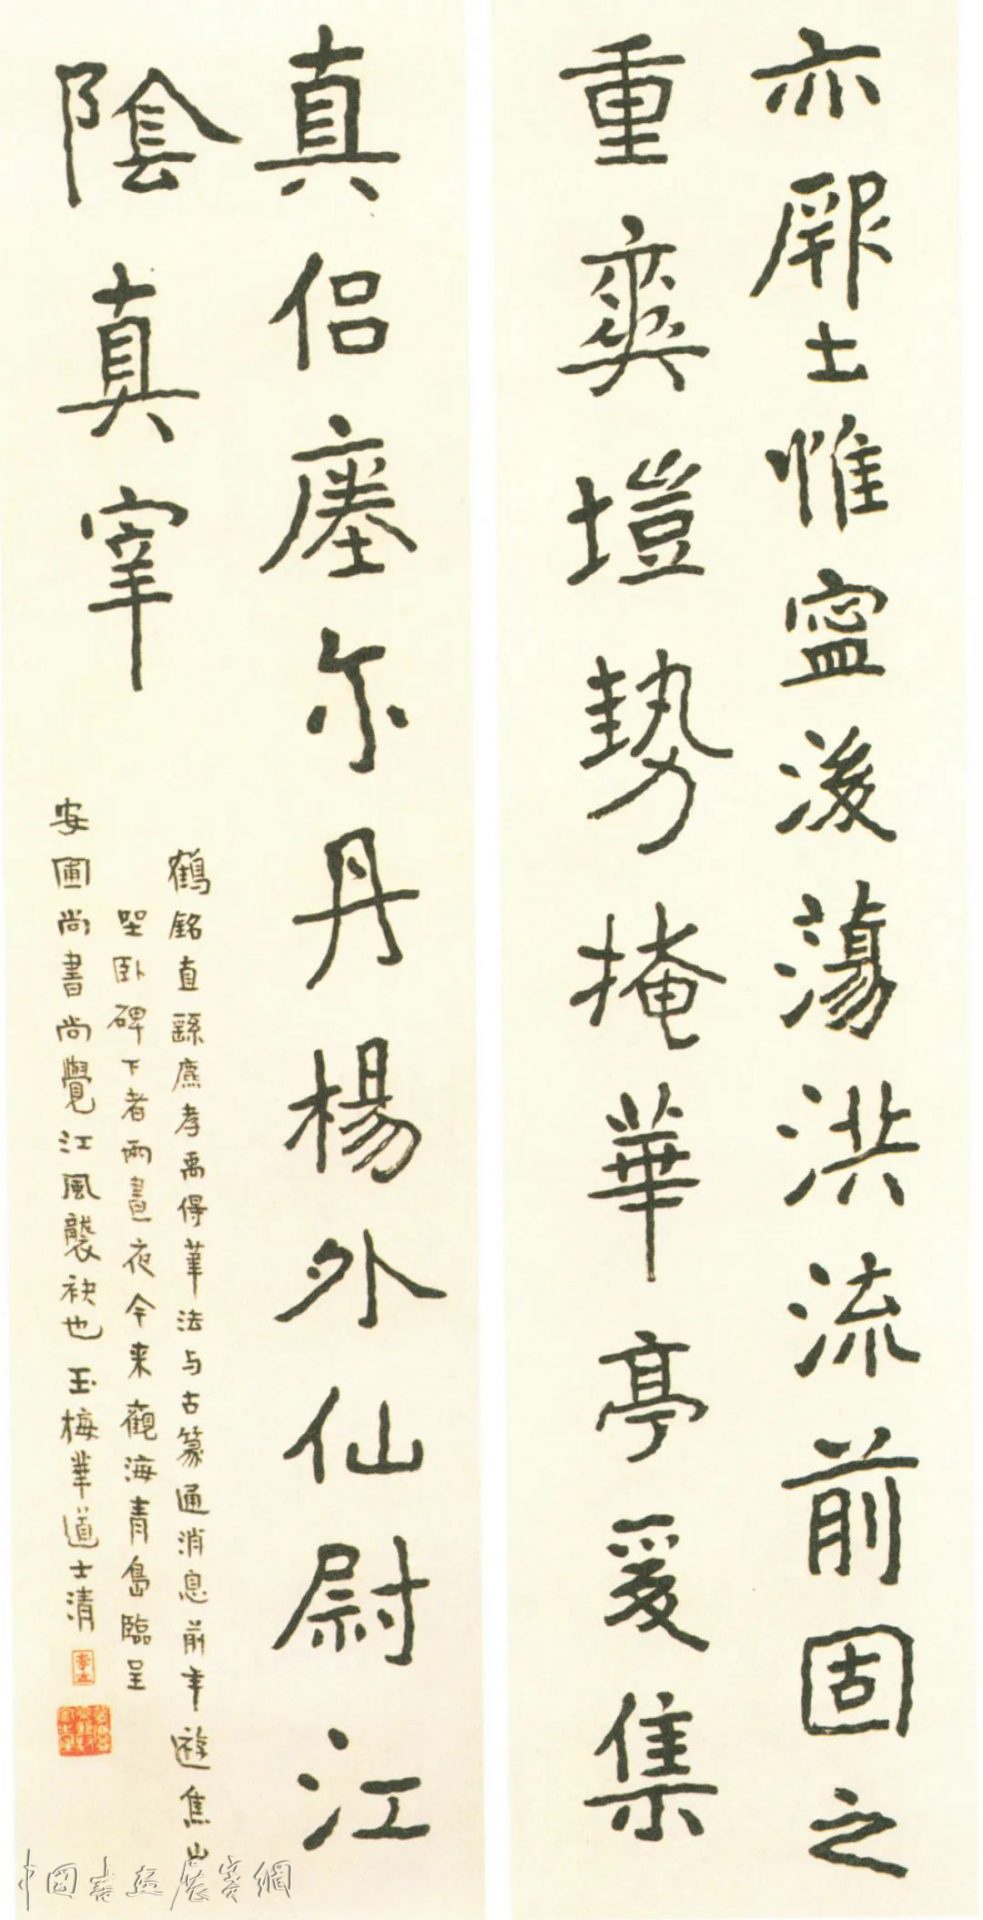 亦厥土惟寧後蕩洪流前固之
重爽塏勢掩華亭爰集
真侶瘞尔丹楊外仙尉江
陰真宰
鶴銘直繇庶孝禹得筆法与古篆通消息前年遊焦山
坐卧碑下者兩晝夜今来觀海青島臨呈
安圃尚書尚覺江風襲袂也玉梅華道士清
中国书画展赛網